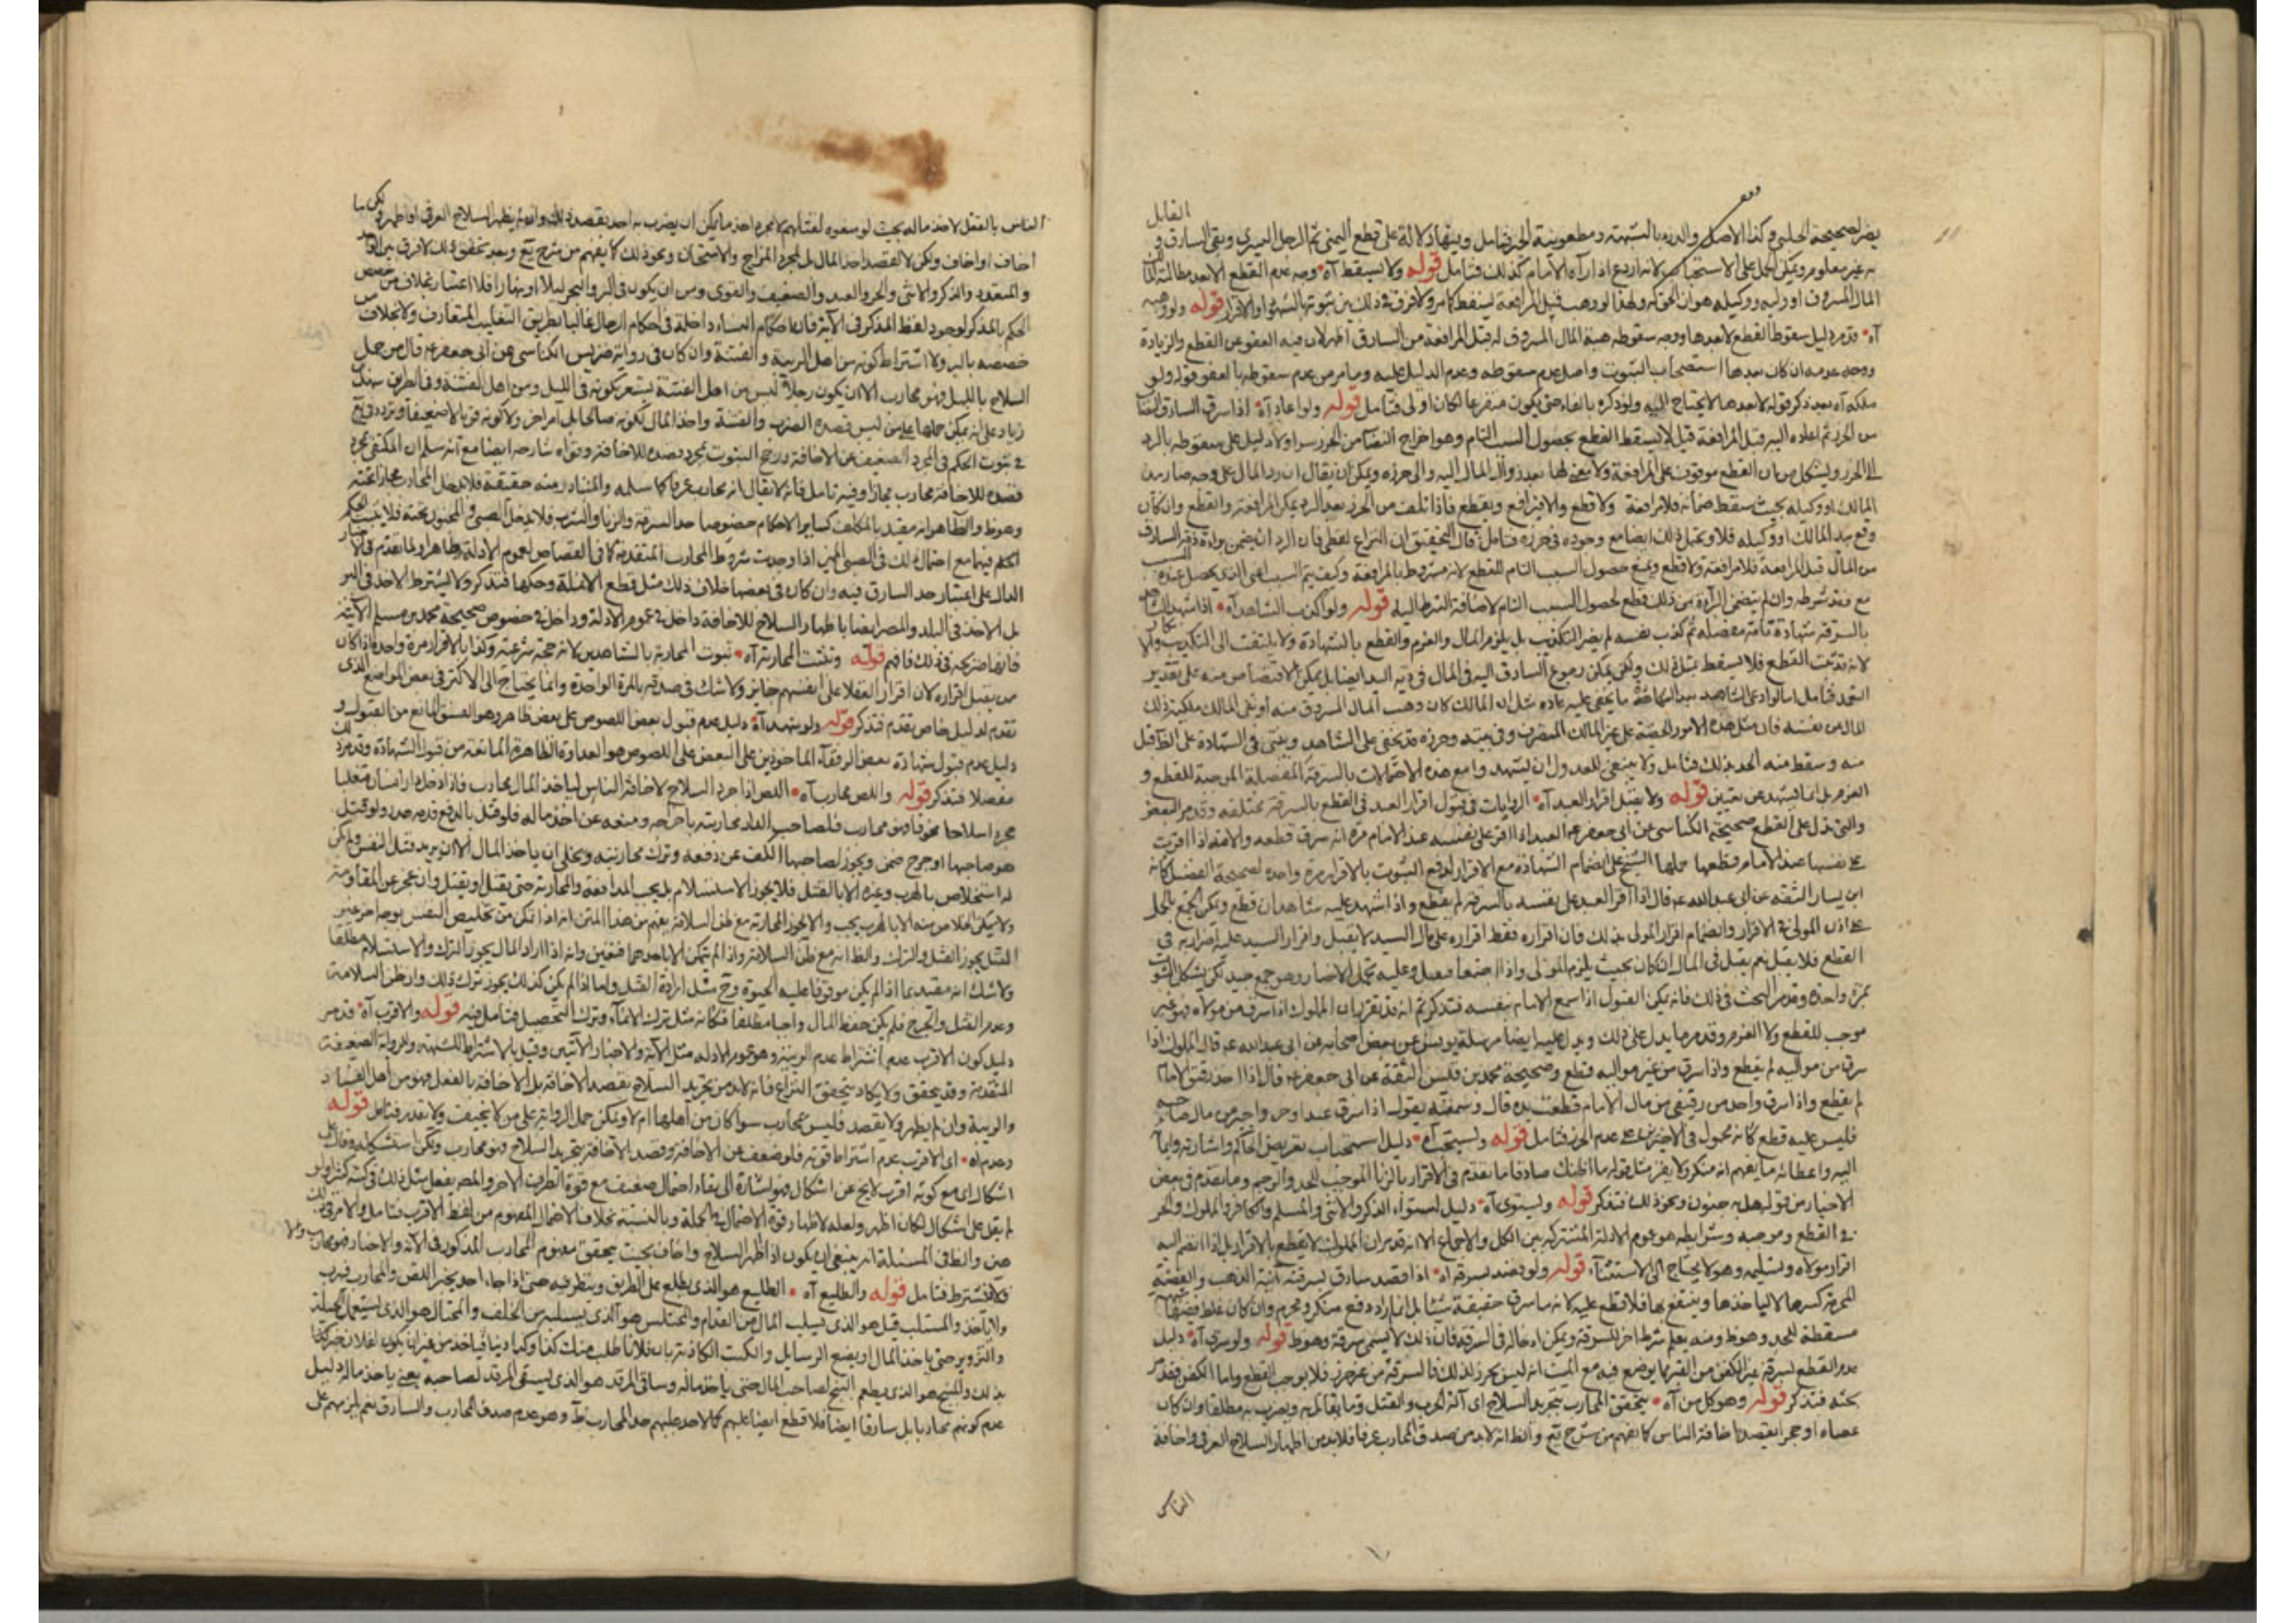 القابل
يضر لصحيحة الحلبي وكذا الاصل والدرء بالشبهة ومطعوينة الحر فتامل وفيها دلالة على قطع اليمنى ثم الرجل اليسرى وبقى السارق
به غير معلوم ويمكن الحمل على الاستحباب لانه اذا رآه الامام كذلك فتامل قوله ولا يسقط آه وجه عدم القطع الا بعد مطالبة
المال المسروق او وليه ووكيله هو ان الحق له ولهذا لو وهب قبل المرافعة يسقط كما مر ولا فرق في ذلك بين ثبوتها بالشهود او الاقرار قوله ولو وهبه
آه قد مر دليل سقوط القطع لا بعدها ووجه سقوطه هبة المال المسروق له قبل المرافعة من السارق اظهر لان فيه العفو عن القطع والزيادة
ووجه عدمه ان كان بعدها استصحاب الثبوت واصل عدم سقوطه وعدم الدليل عليه وما مر من عدم سقوطه بالعفو قوله ولو
ملكه آه بعد ذكر قوله لا بعدها لا يحتاج اليه ولو ذكره بالفاء حتى يكون متفرعا لكان اولى فتامل قوله ولو اعاد آه اذا سرق السارق
من الحرز ثم اعاده اليه قبل المرافعة قيل لا يسقط القطع بحصول السبب التام وهو اخراج النصاب من الحرز سرا ولا دليل على سقوطه بالرد
الى الحرز ويشكل من ان القطع موقوف على المرافعة ولا معنى لها بعد رد المال اليه والى حرزه ويمكن ان يقال ان رد المال على وجه صار بيد
المالك او وكيله بحيث سقط ضمانه فلا مرافعة ولا قطع والا فيرافع ويقطع فاذا تلف من الحرز بعد الرد يمكن المرافعة والقطع وان كان
وقع بيد المالك او وكيله فلا ويحتمل ذلك ايضا مع وجوده في حرزه فتامل قال التحقيق ان النزاع لفظي فان الرد ان يضمن براءة ذمة السارق
من المال قبل المرافعة فلا مرافعة ولا قطع ويمنع حصول السبب التام للقطع لانه مشروط بالمرافعة وكيف يتم السبب
مع فقد شرطه وان لم يتضمن البراءة من ذلك قطع لحصول السبب التام لاضافة الشرط اليه قوله ولو اكذب الشاهد آه اذا شهد الشاهد
بالسرقة شهادة تامة مفصلة ثم كذب نفسه لم يضر التكذيب بل يلزم المال والغرم والقطع بالشهادة ولا يلتفت الى التكذيب
لانه قد ثبت القطع فلا يسقط بمثل ذلك ولكن يمكن رجوع السارق اليه في المال في دية اليد ايضا بل يمكن الاقتصاص منه على تقدير
التعمد فتامل
المال من نفسه فان مثل هذه الامور الخفية على غير المالك المتصرف وفي بيته وحرزه قد يخفى على الشاهد ويبنى في الشهادة على الظاهر قبل
منه وسقط منه الحد بذلك فتامل ولا ينبغي للعدول ان يشهدوا مع هذه الاحتمالات بالسرقة المفصلة الموجبة للقطع و
الغرم بل انما يشهد عن يقين قوله ولا يقبل اقرار العبد آه الروايات في قبول اقرار العبد في القطع بالسرقة مختلفة وقد مر البعض
والتي تدل على القطع صحيحة الكناسي عن ابي جعفر عه العبد اذا اقر على نفسه عند الامام مرة انه سرق قطعه والامة اذا اقرت
على نفسها عند الامام قطعها حملها الشيخ على انضمام الشهادة مع الاقرار لدفع الثبوت بالاقرار مرة واحدة لصحيحة الفضيل
ابن يسار الثقة عن ابي عبد الله عه قال اذا اقر العبد على نفسه بالسرقة لم يقطع واذا شهد عليه شاهدان قطع ويمكن الجمع بالحمل
على اذن المولى في الاقرار وانضمام اقرار المولى بذلك فان اقراره فقط اقراره على مال السيد لا يقبل واقرار السيد عليه اضرار به في
القطع فلا يقبل نعم يقبل في المال ان كان بحيث يلزم المولى واذا اجتمعا فيقبل وعليه تحمل الاخبار وهو جمع جيد لكن يشكل الثبوت
بمرة واحدة وقد مر البحث في ذلك فانه يمكن القبول اذا سمع الامام بنفسه فتذكر ثم انه قد تقرر ان المملوك اذا سرق من مولاه فهو غير
موجب للقطع ولا الغرم وقد مر ما يدل على ذلك ويدل عليه ايضا مرسلة يونس عن بعض اصحابه عن ابي عبد الله عه قال المملوك اذا
سرق من مواليه لم يقطع واذا سرق من غير مواليه قطع وصحيحة محمد بن قيس الثقة عن ابي جعفر عه قال اذا اخذ رقيق الامام
لم يقطع واذا سرق واحد من رقيقي من مال الامام قطعت يده قال وسمعته يقول اذا سرق عبد او اجير من مال صاحبه
فليس عليه قطع كانه محمول في الاجير على عدم الحرز فتامل قوله ويستحب آه دليل استحباب تعريض الحاكم واشارته
اليه واعطائه ما يفهم انه منكر ولا يقر مثل قوله ما اظنك صادقا ما تقدم في الاقرار بالزنا الموجب للحد والرجم وما تقدم في بعض
الاخبار من قوله هل به جنون ونحو ذلك فتذكر قوله ويستوي آه دليل استواء الذكر والانثى والمسلم والكافر والمملوك والحر
في القطع وموجبه وشرايطه هو عموم الادلة المشتركة بين الكل والاجماع الا انه قد مر ان المملوك لا يقطع بالاقرار بل اذا انضم اليه
اقرار مولاه وتسليمه وهو لا يحتاج الى الاستثناء قوله ولو قصد لسرقة آه اذا قصد سارق لسرقة آنية الذهب والفضة
المحرمة كسرها لا لياخذها وينتفع بها فلا قطع عليه كانه ما سرق حقيقة شيئا بل انما اراد دفع منكر ومحرم وان كان غلط
مسقطة للحد وهو ظ ومنه يعلم شرط اخر للسرقة ويمكن ادخاله في السرقة فان ذلك لا يسمى سرقة وهو ظ قوله ولو سرق آه دليل
عدم القطع لسرقة غير الكفن من القبر مما يوضع فيه مع الميت انه ليس بحرز لذلك فالسرقة من غير حرز فلا يوجب القطع واما الكفن فقد مر
بحثه فتذكر قوله وهو كل من آه يتحقق المحارب بتجريد السلاح اى آلة الحرب والقتل وما يقاتل به ويضرب به مطلقا وان كان
عصاه او حجر بقصد اخافة الناس كما يفهم من شرح يع والظ انه لا بد من صدق المحارب عرفا فلا بد من اظهار السلاح العرفى واخافة
الناس
الناس بالفعل لاخذ ماله بحيث لو منعوه لقتلهم لا مجرد اخذ ما يمكن ان يضرب به احد بقصد ذلك وانه لم يظهر السلاح العرفى او اظهر لكن ما
اخاف او اخاف ولكن لا لقصد اخذ المال بل لمجرد المزاح والامتحان ونحو ذلك كما يفهم من شرح يع وبعد تحقق ذلك لا فرق بين الواحد
والمتعدد والذكر والانثى والحر والعبد والضعيف والقوى وبين ان يكون في البر والبحر ليلا او نهارا فلا اعتبار بخلاف من خصص
الحكم بالمذكر لوجود لفظ المذكر في الآية فان احكام النساء داخلة في احكام الرجال غالبا بطريق التغليب المتعارف ولا بخلاف من
خصصه بالبر ولا اشتراط كونه من اهل الريبة والفتنة وان كان في رواية ضريس الكناسي عن ابي جعفر عه قال من حمل
السلاح بالليل فهو محارب الا ان يكون رجلا ليس من اهل الفتنة يشعر بكونه في الليل ومن اهل الفتنة وفي الطريق سهل بن
زياد على انه يمكن حملها على من ليس قصده الضرب والفتنة واخذ المال لكونه صالحا بل امراض ولا كونه قويا لا ضعيفا وتردد في يع
في ثبوت الحكم في المجرد الضعيف عن الاخافة ورجح الثبوت بمجرد قصده للاخافة وقواه شارحه ايضا مع انه سلم ان المكتفى بمجرد
قصده للاخافة محارب مجازا وفيه تامل فانه لا يقال انه محارب عرفا كما سلمه والمتبادر منه حقيقة فلا يدخل المحارب مجازا تحته
وهو ظ والظاهر انه مقيد بالمكلف كساير الاحكام خصوصا حد السرقة والزنا والشرب فلا يدخل الصبي والمجنون تحته فلا يثبت الحكم
الحكم فيهما مع احتمال ذلك في الصبي المميز اذا وجدت شروط المحارب المتقدمة كما في القصاص لعموم الادلة وظاهرا ولما تقدم في
الدال على اعتبار حد السارق فيه وان كان في بعضها خلاف ذلك مثل قطع الانملة وحكها فتذكر ولا يشترط الاخذ في البر
بل الاخذ في البلد والمصر ايضا باظهار السلاح للاخافة داخل في عموم الادلة وداخل في خصوص صحيحة محمد بن مسلم الآتية
فانها صريحة في ذلك فافهم قوله وتثبت المحاربة آه ثبوت المحاربة بالشاهدين لانه حجة شرعية وكذا بالاقرار مرة واحدة اذا كان
ممن يقبل اقراره لان اقرار العقلاء على انفسهم جايز ولا شك في صدقه بالمرة الواحدة وانما يحتاج الى الاكثر في بعض المواضع الذي
تقدم لدليل خاص تقدم فتذكر قوله ولو شهد آه دليل عدم قبول بعض اللصوص على بعض ظاهر وهو الفسق المانع من القبول و
دليل عدم قبول شهادة بعض الرفقاء الماخوذين على البعض على اللصوص هو العداوة الظاهرة المانعة من قبول الشهادة وقد مر ذلك
مفصلا فتذكر قوله واللص محارب آه اللص اذا جرد السلاح لاخافة الناس لياخذ المال محارب فاذا دخل دار انسان متغلبا
مجردا سلاحا مخوفا فهو محارب فلصاحب الدار محاربته باخراجه ومنعه عن اخذ ماله فلو قتل بالدفع فدمه هدر ولو قتل
هو صاحبها او جرح ضمن ويجوز لصاحبها الكف عن دفعه وترك محاربته ويخلى ان ياخذ المال الا ان يريد قتل النفس ولم يكن
له استخلاص بالهرب وغيره الا بالقتل فلا يجوز الاستسلام بل يجب المدافعة والمحاربة حتى يقتل او يقتل وان عجز عن المقاومة
ولا يمكن الخلاص منه الا بالهرب يجب والا يجوز المحاربة مع ظن السلامة يفهم من هذا المتن انه اذا تمكن من تخليص النفس بوجه اخر غير
القتل يجوز القتل والترك والظ انه مع ظن السلامة واذا لم يتمكن الا باحدهما فتعين وانه اذا اراد المال يجوز الترك والاستسلام مطلقا
ولا شك انه مقيد بما اذا لم يكن موقوفا عليه الحيوة وح مثل ارادة القتل واما اذا لم يكن كذلك يجوز ترك ذلك وان ظن السلامة
وعدم القتل والجرح فلم يكن حفظ المال واجبا مطلقا فكانه مثل ترك الانماء وترك التحصيل فتامل فيه قوله والاقرب آه قد مر
دليل كون الاقرب عدم اشتراط عدم الريبة وهو عموم الادلة مثل الآية والاخبار الآتيين وقيل بالاشتراط للشبهة والرواية الضعيفة
المتقدمة وقد يحقق ولا يكاد يتحقق النزاع فانه لا بد من تجريد السلاح بقصد الاخافة بل الاخافة بالفعل فهو من اهل الفساد
والريبة وان لم يظهر ولا يقصد فليس محارب سواء كان من اهلها ام لا ويمكن حمل الرواية على من لا يخيف ولا يقدر فتامل قوله
وعدم آه اى الاقرب عدم اشتراط قوته فلو ضعف عن الاخافة وقصد الاخافة بتجريد السلاح فهو محارب ولكن استشكله وقال على
اشكال اى مع كونه اقرب لا يخ عن اشكال فهو اشارة الى بقاء احتمال ضعيف مع قوة الطرف الاخر والمص يفعل مثل ذلك في كتبه كثيرا ولو
لم يقل على اشكال لكان اظهر ولعله لاظهار قوة الاحتمال في الجملة وبالنسبة بخلاف الاحتمال المفهوم من لفظ الاقرب فتامل والامر في ذلك
هين والظ في المسئلة انه ينبغي ان يكون اذا ظهر السلاح واخاف بحيث يتحقق مفهوم المحارب المذكور في الآية والاخبار فهو محارب والا
فلا يشترط فتامل قوله والطليع آه الطليع هو الذي يطلع على الطريق وينظر فيه حتى اذا جاء احد يخبر اللص والمحارب فيهرب
والا ياخذ والمستلب قيل هو الذي يسلب المال من القدام والمختلس هو الذي يسلبه من الخلف والمحتال هو الذي يستعمل الحيلة
والتزوير حتى ياخذ المال او يضع الرسايل والكتب الكاذبة بان فلانا طلب منك كذا وكذا دينا فياخذ من غير ان يكون لفلان خبر
بذلك والمبنج هو الذي يطعم البنج لصاحب المال حتى ياخذ ماله وساقي المرقد هو الذي يسقى المرقد لصاحبه يعنى ياخذ ماله دليل
عدم كونهم محاربا بل سارقا ايضا فلا قطع ايضا عليهم كما لا حد عليهم حد المحارب ظ وهو عدم صدق المحارب والسارق نعم يلزمهم على